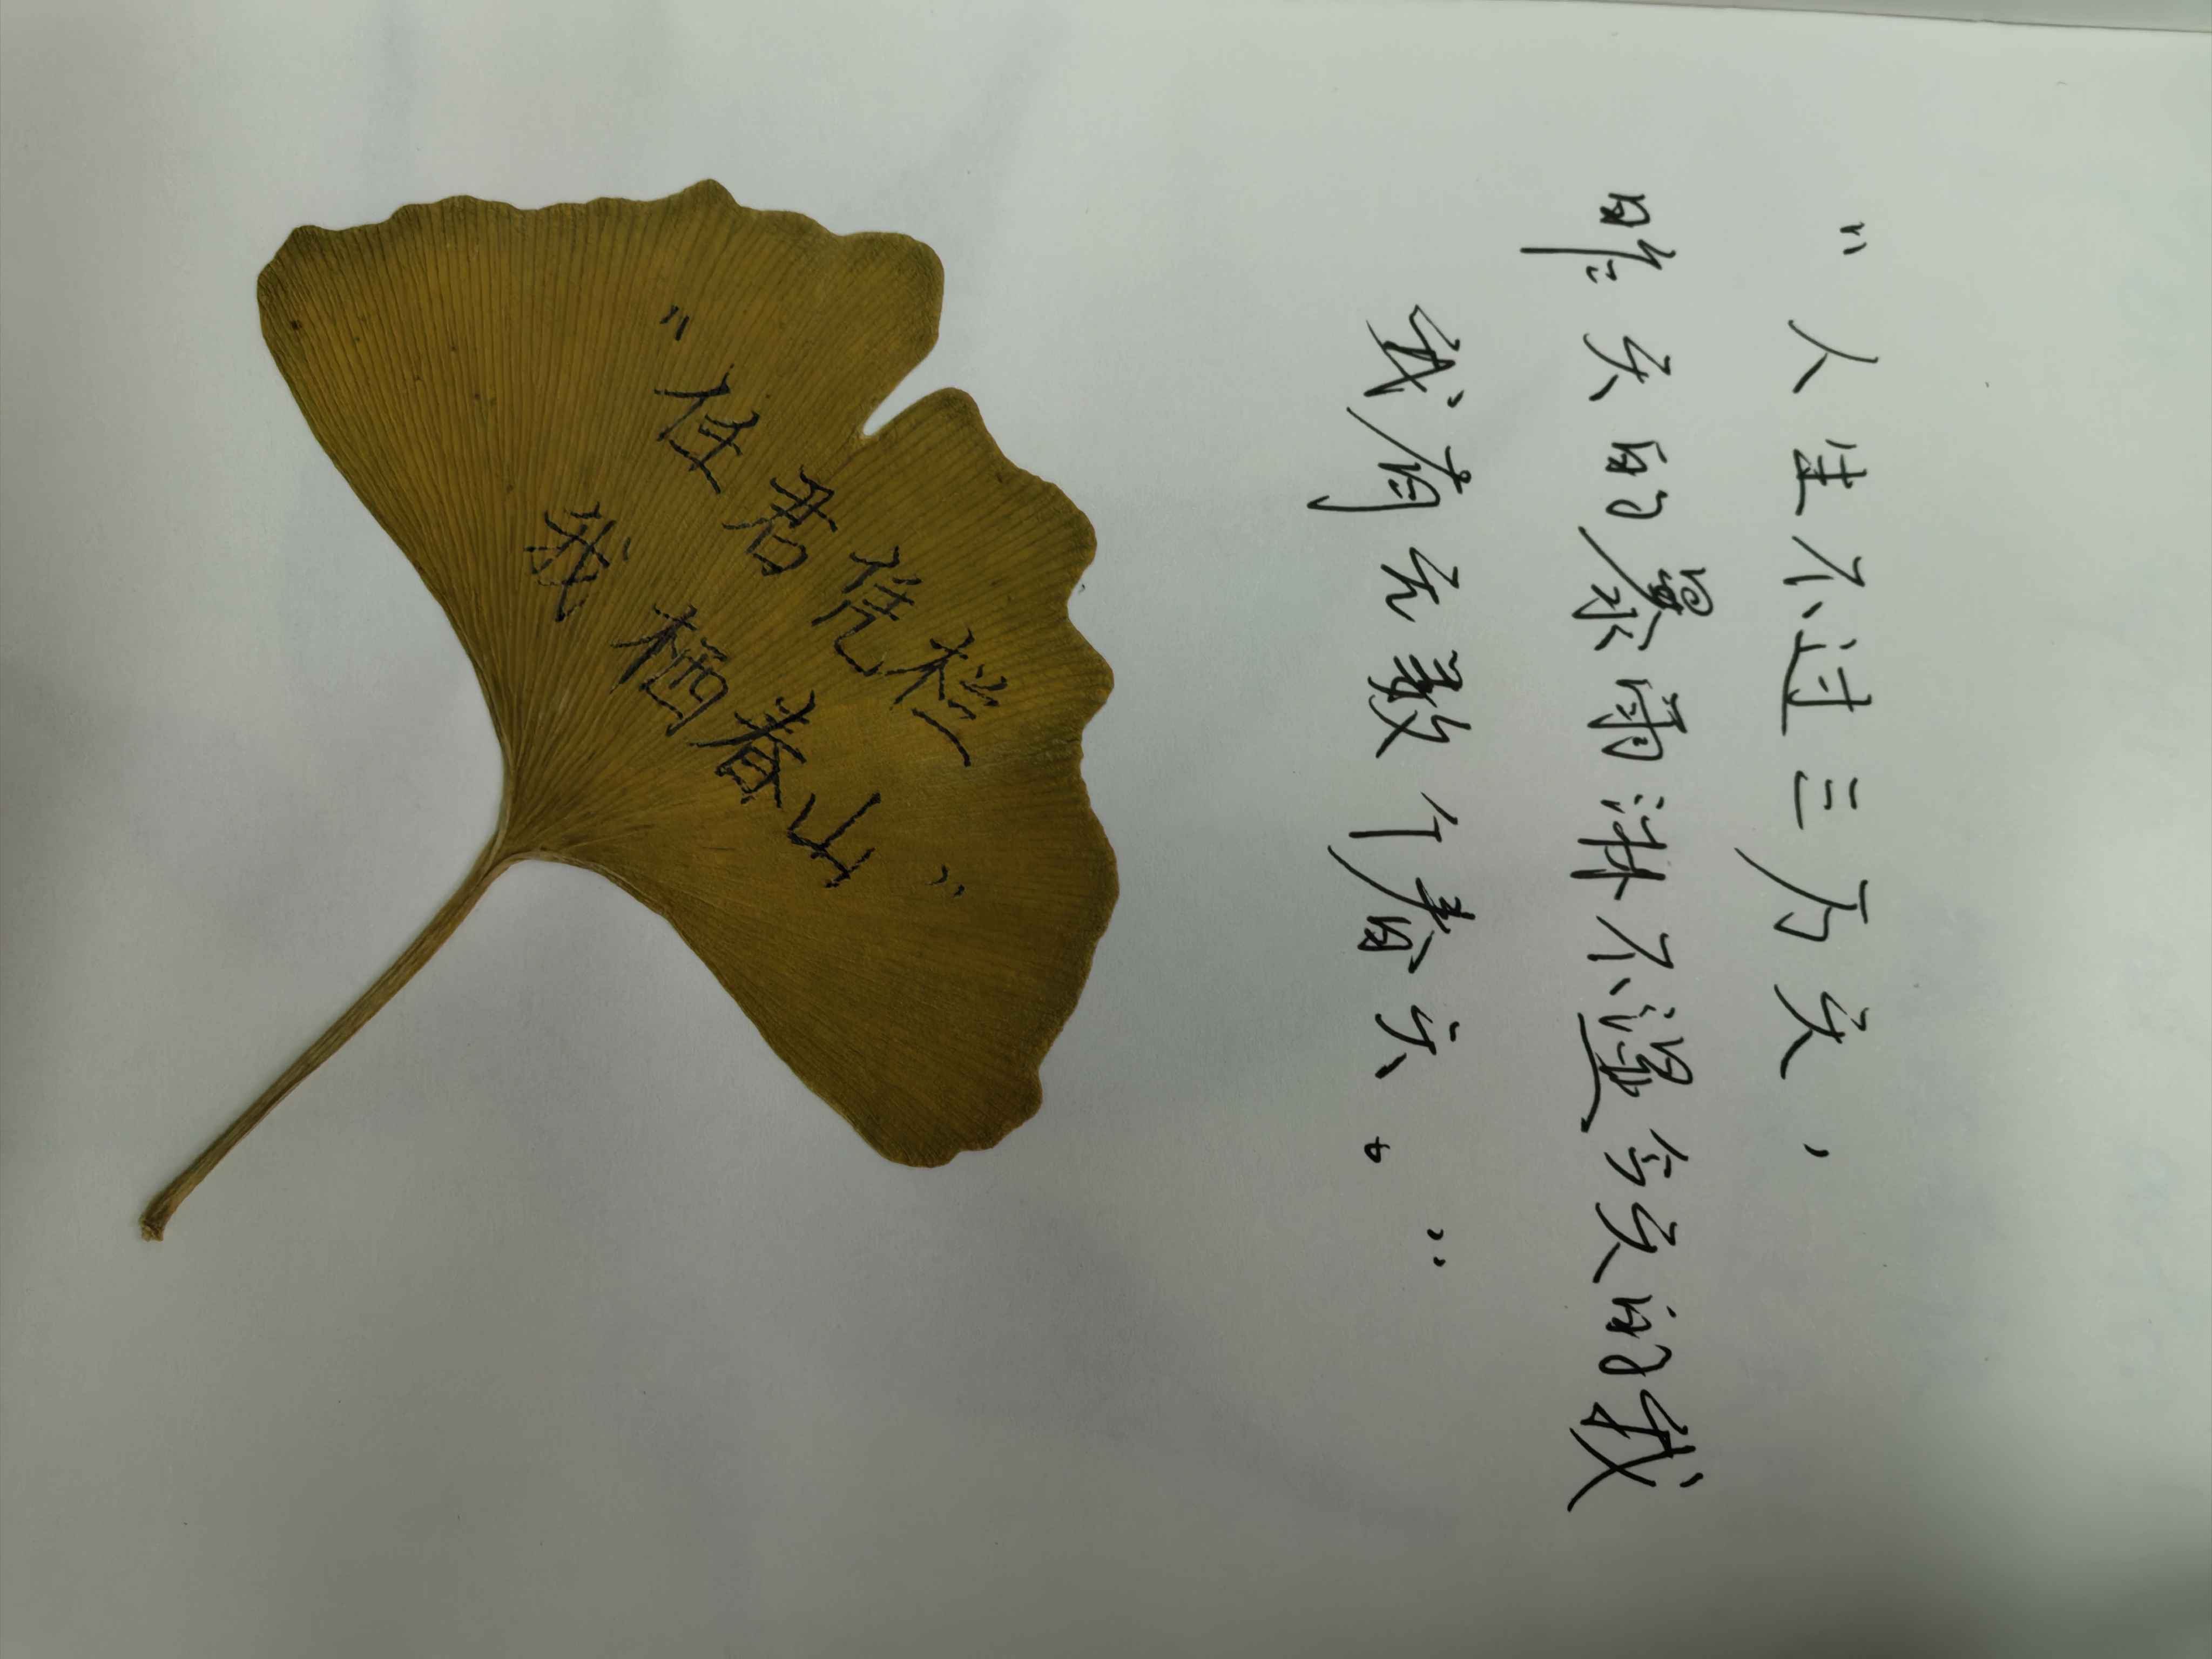 “人生不过三万天，
昨天的暴雨淋不湿今天的我
我有无数个春天。”
“任君凭栏
我栖春山”